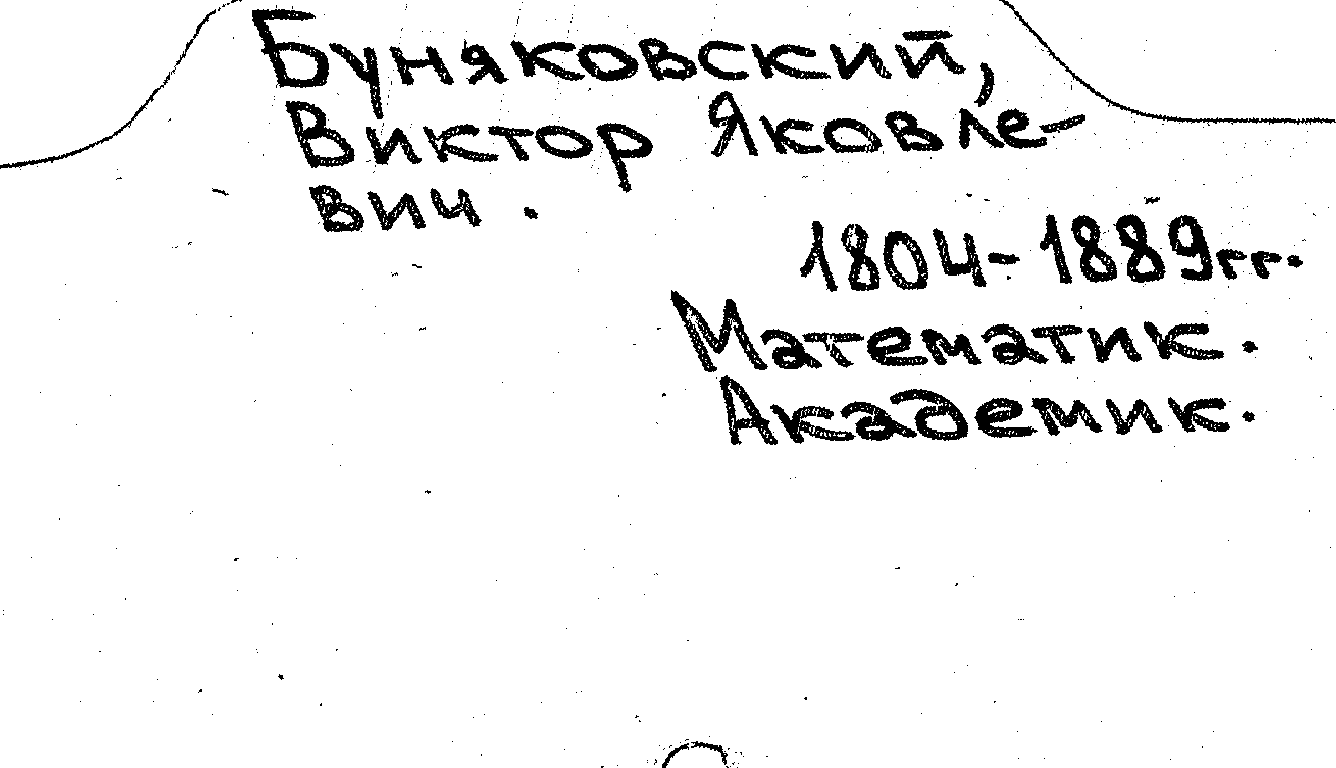 Буняковский,
Виктор Яковле-
вич.
1804-1889гг.
Математик.
Академик.